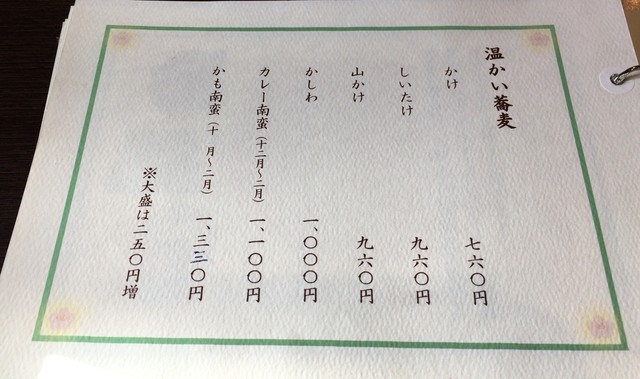 温かい蕎麦
かけ 七六〇円
しいたけ 九六〇円
山かけ 九六〇円
かしわ 一、〇〇〇円
カレー南蛮（十二月～二月） 一、一〇〇円
かも南蛮（十 月～二月） 一、三三〇円
※大盛は二五〇円増